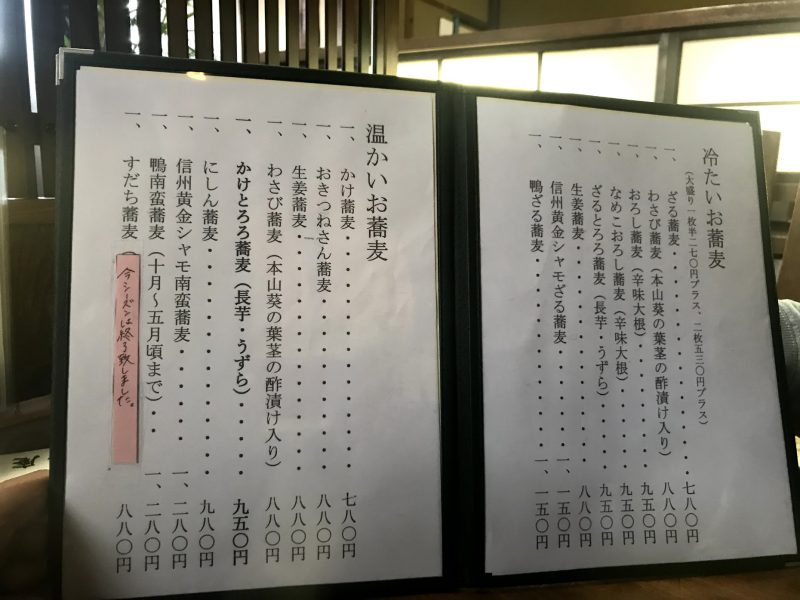 冷たいお蕎麦
(大盛り一枚半二七〇円プラス、二枚五三〇円プラス)
一、ざる蕎麦・・・・・・・・・・七八〇円
一、わさび蕎麦(本山葵の葉茎の酢漬け入り)八八〇円
一、おろし蕎麦(辛味大根)・・・・・九五〇円
一、なめこおろし蕎麦(辛味大根)・・・九五〇円
一、ざるとろろ蕎麦(長芋・うずら)・・・九五〇円
一、生姜蕎麦・・・・・・・・・・八八〇円
一、信州黄金シャモざる蕎麦・・・・一、一五〇円
一、鴨ざる蕎麦・・・・・・・・一、一五〇円
温かいお蕎麦
一、かけ蕎麦・・・・・・・・・・七八〇円
一、おきつねさん蕎麦・・・・・・・八八〇円
一、生姜蕎麦・・・・・・・・・・八八〇円
一、わさび蕎麦(本山葵の葉茎の酢漬け入り)八八〇円
一、かけとろろ蕎麦(長芋・うずら)・・・九五〇円
一、にしん蕎麦・・・・・・・・・・九八〇円
一、信州黄金シャモ南蛮蕎麦・・・・一、二八〇円
一、鴨南蛮蕎麦(十月~五月頃まで)・・一、二八〇円
一、すだち蕎麦(今シーズンは終了致しました。八八〇円